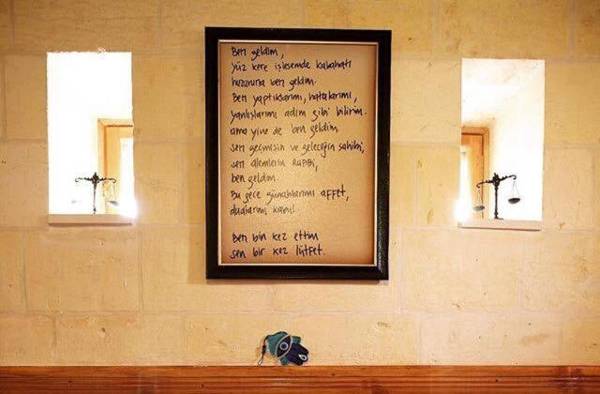 Ben geldim,
yüz kere işlesemde kabahati
huzuruna ben geldim.
Ben yaptıklarımı, hatalarımı,
yanlışlarımı adım gibi bilirim.
ama yine de ben geldim
sen geçmişin ve geleceğin sahibi,
sen alemlerin Rabbi,
ben geldim.
Bu gece günahlarımı affet,
dualarımı kabul
Ben bin kez ettim
sen bir kez lütfet.